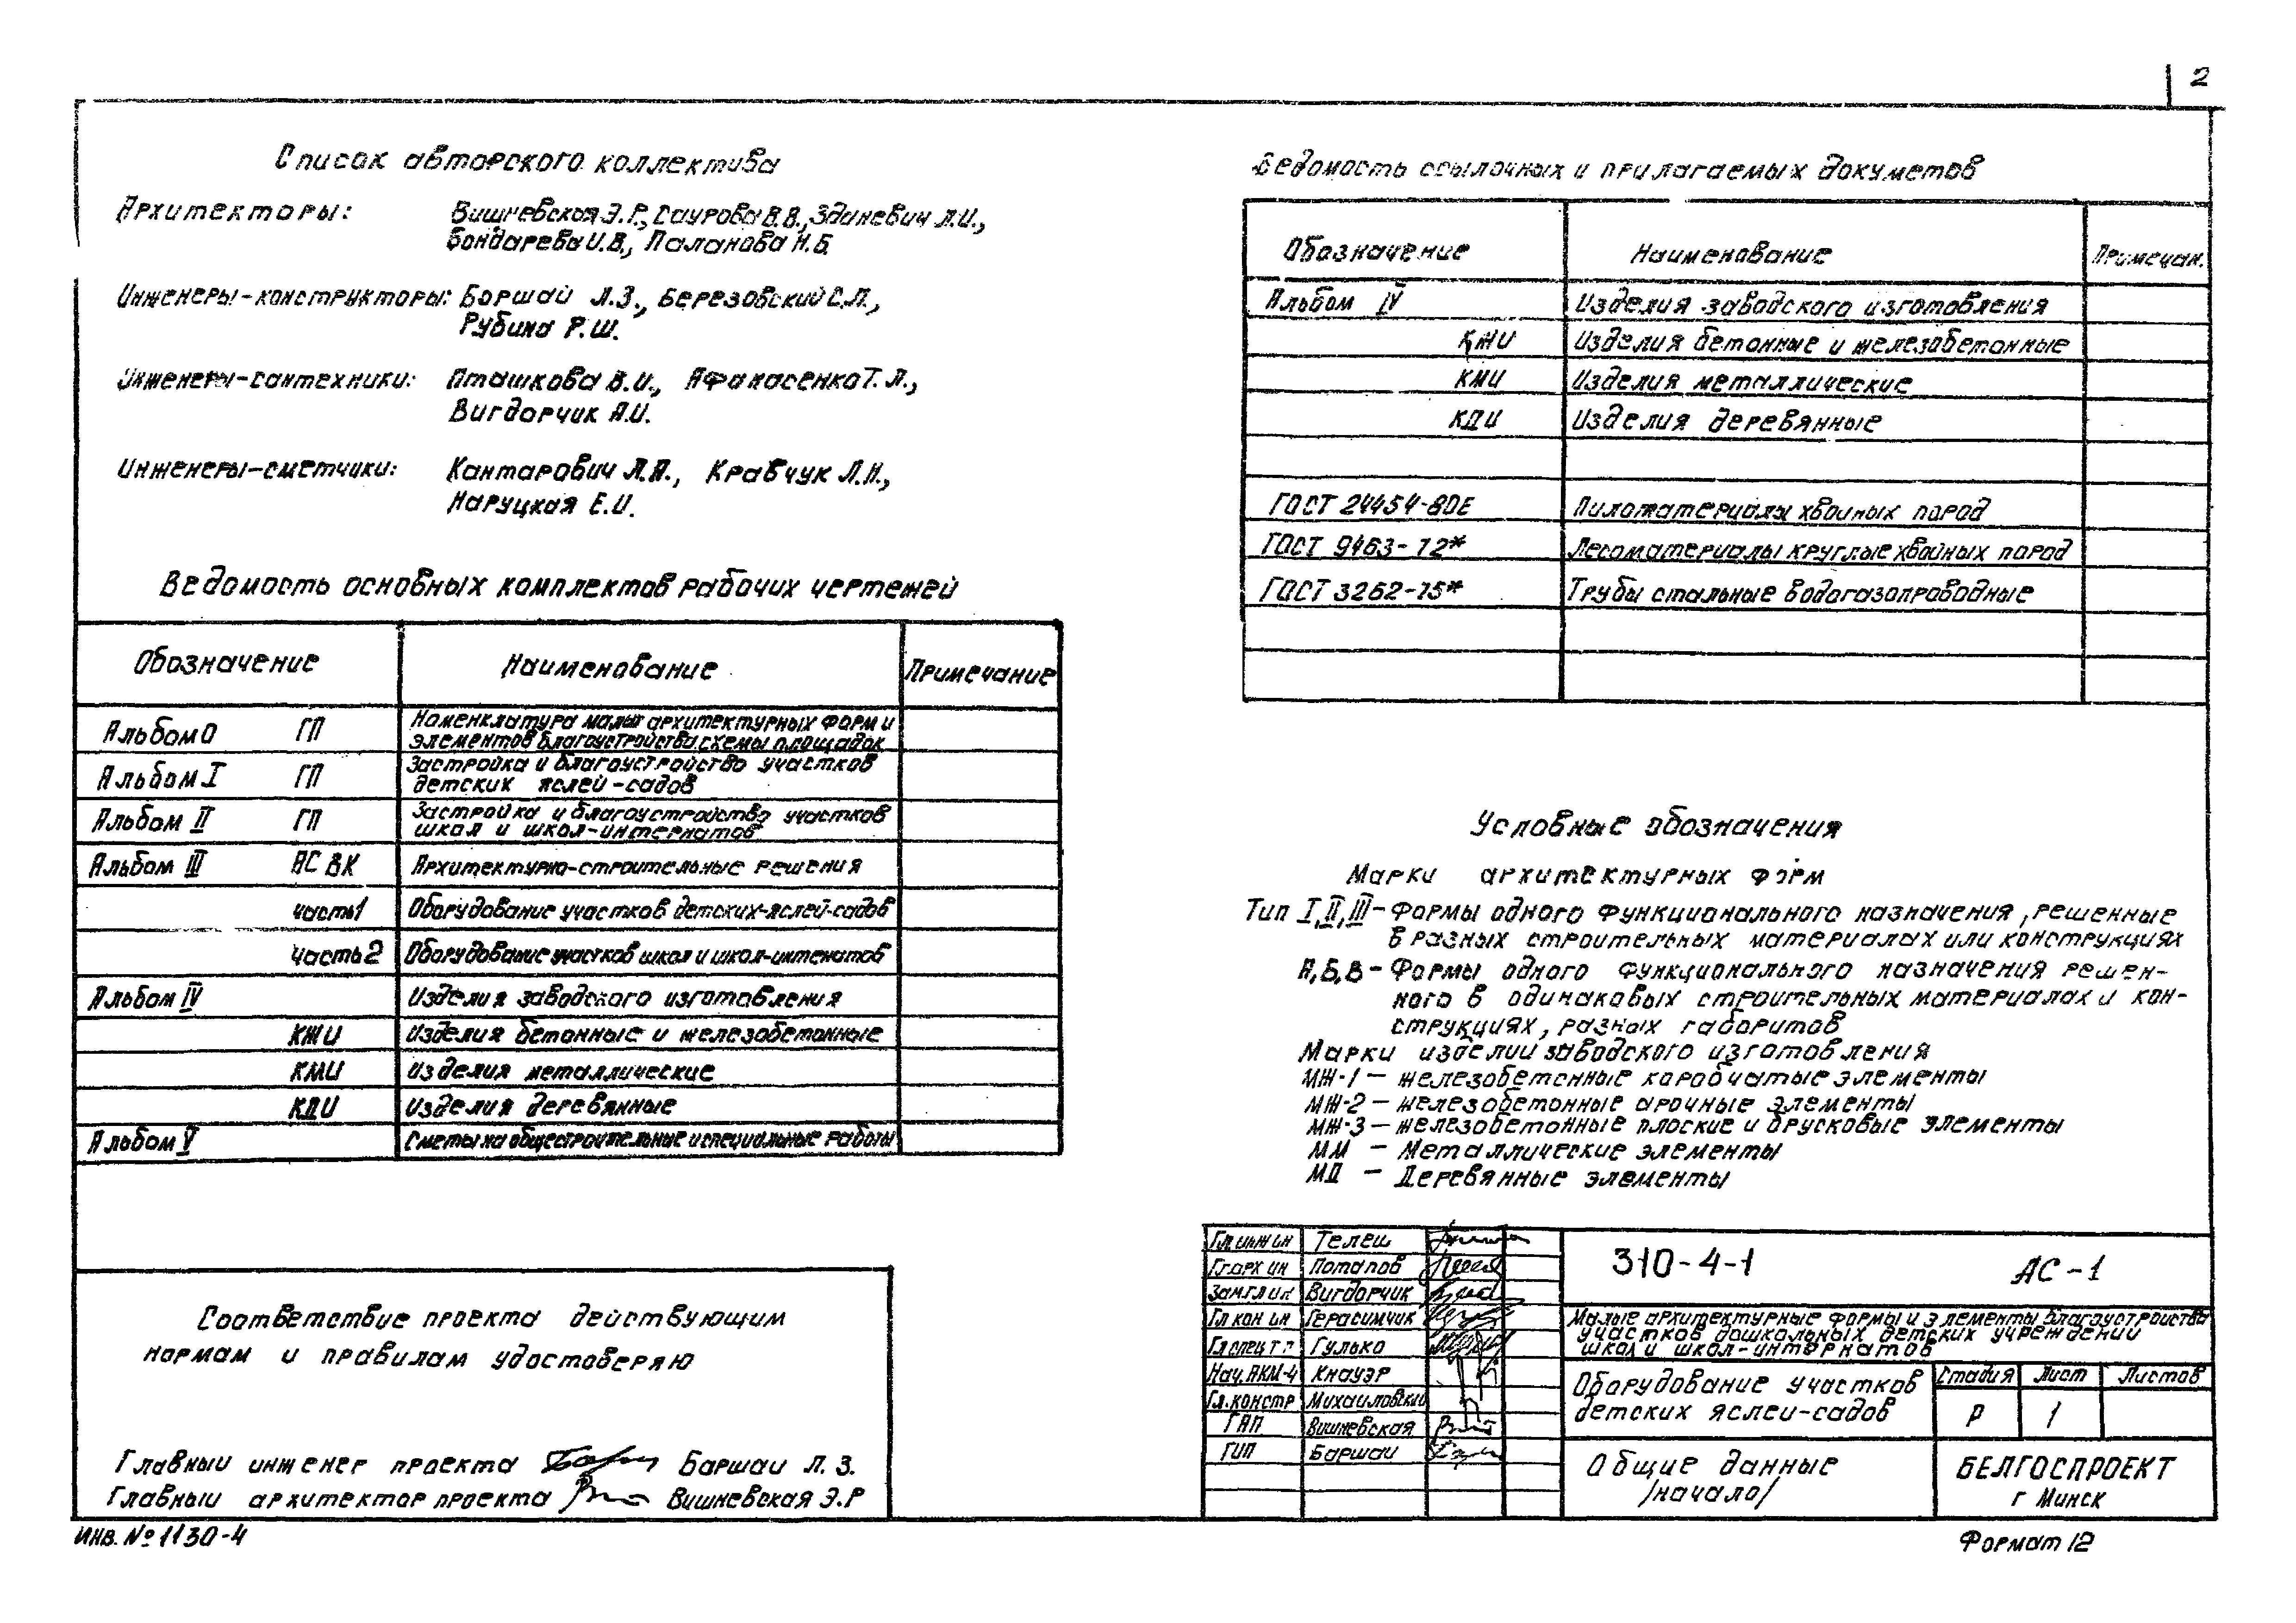 2
Список авторского коллектива
Архитекторы: Вишневская Э.Р., Саурова В.В., Зданевич Л.И.,
Бондарева И.В., Паланова Н.Б.
Инженеры-конструкторы: Боршай Л.З., Березовский С.Л.,
Рубина Р.Ш.
Инженеры-сантехники: Пташкова В.И., Афанасенко Т.Л.,
Вигдорчик А.И.
Инженеры-сметчики: Кантарович Л.Я., Крабчук Л.Н.,
Наруцкая Е.И.
Ведомость основных комплектов рабочих чертежей
Обозначение Наименование Примечание
Альбом 0 ГП Номенклатура малых архитектурных форм и
элементов благоустройства, схемы площадок
Альбом I ГП Застройка и благоустройство участков
детских яслей-садов
Альбом II ГП Застройка и благоустройство участков
школ и школ-интернатов
Альбом III АС ВК Архитектурно-строительные решения
часть 1 Оборудование участков детских-яслей-садов
часть 2 Оборудование участков школ и школ-интенатов
Альбом IV Изделия заводского изготовления
КЖИ Изделия бетонные и железобетонные
КМИ Изделия металлические
КДИ Изделия деревянные
Альбом V Сметы на общестроительные и специальные работы
Соответствие проекта действующим
нормам и правилам удостоверяю
Главный инженер проекта Баршай Л.З.
Главный архитектор проекта Вишневская Э.Р
Инв. № 1130-4
Ведомость ссылочных и прилагаемых документов
Обозначение Наименование Примечан.
Альбом IV Изделия заводского изготовления
КЖИ Изделия бетонные и железобетонные
КМИ Изделия металлические
КДИ Изделия деревянные
ГОСТ 24454-80Е Пиломатериалы хвойных пород
ГОСТ 9463-72* Лесоматериалы круглые хвойных пород
ГОСТ 3262-75* Трубы стальные водогазопроводные
Условные обозначения
Марки архитектурных форм
Тип I, II, III – Формы одного функционального назначения, решенные
в разных строительных материалах или конструкциях
А, Б, В – Формы одного функционального назначения решен-
ного в одинаковых строительных материалах и кон-
струкциях, разных габаритов
Марки изделий заводского изготовления
МЖ-1 – железобетонные коробчатые элементы
МЖ-2 – железобетонные арочные элементы
МЖ-3 – железобетонные плоские и брусковые элементы
ММ – Металлические элементы
МД – Деревянные элементы
Гл инж ин Телеш
Гл арх ин Потапов
Зам гл ин Вигдорчик
Гл кон ин Герасимчик
Гл спец т.о Гулько
Нач. АКМ-4 Кнауэр
Гл. констр Михайловский
ГАП Вишневская
ГИП Баршай
310-4-1 АС-1
Малые архитектурные формы и элементы благоустройства
участков дошкольных детских учреждений
школ и школ-интернатов
Оборудование участков
детских яслей-садов
Стадия Лист Листов
Р 1
Общие данные
/начало/
БЕЛГОСПРОЕКТ
г Минск
Формат 12